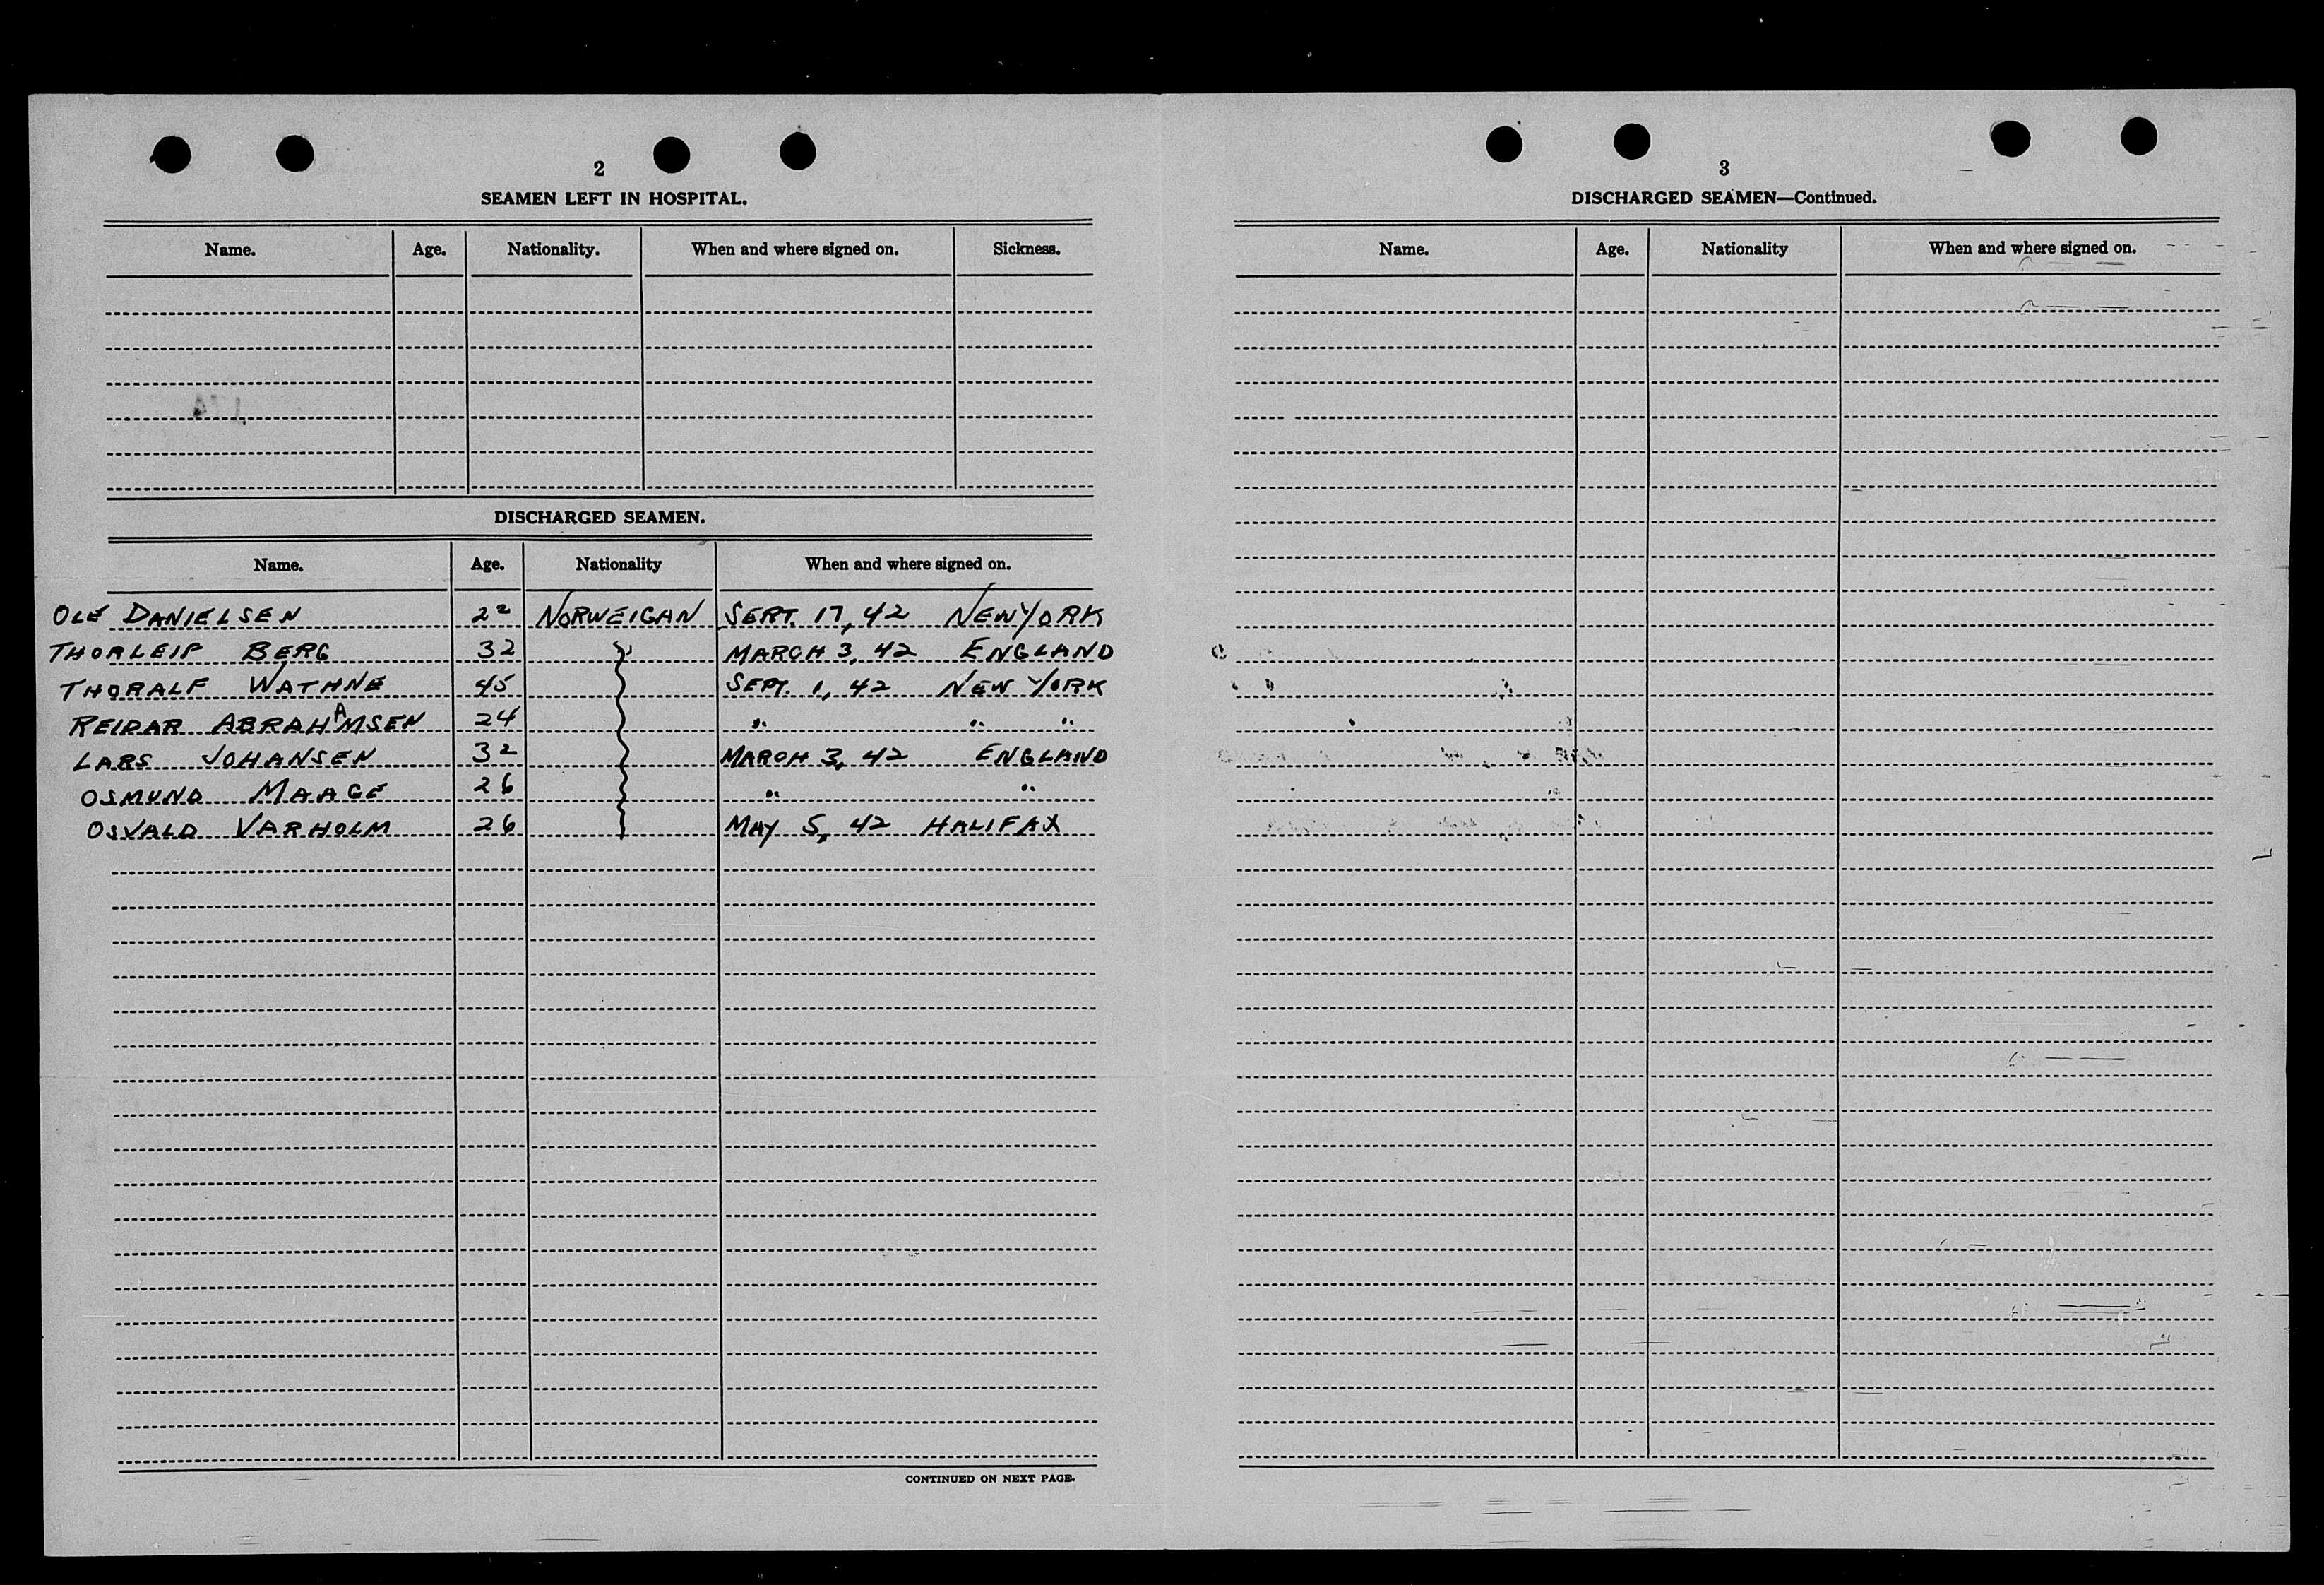 2
SEAMEN LEFT IN HOSPITAL.
Name. Age. Nationality. When and where signed on. Sickness.
DISCHARGED SEAMEN.
Name. Age. Nationality When and where signed on.
OLE DANIELSEN 22 NORWEIGAN SEPT. 17, 42 NEW YORK
THORLEIF BERG 32 MARCH 3, 42 ENGLAND
THORALF WATHNE 45 SEPT. 1, 42 NEW YORK
REIDAR ABRAHAMSEN 24 " " "
LARS JOHANSEN 32 MARCH 3, 42 ENGLAND
OSMUND MAAGE 26 " "
OSVALD VARHOLM 26 MAY 5, 42 HALIFAX
CONTINUED ON NEXT PAGE.
3
DISCHARGED SEAMEN—Continued.
Name. Age. Nationality When and where signed on.